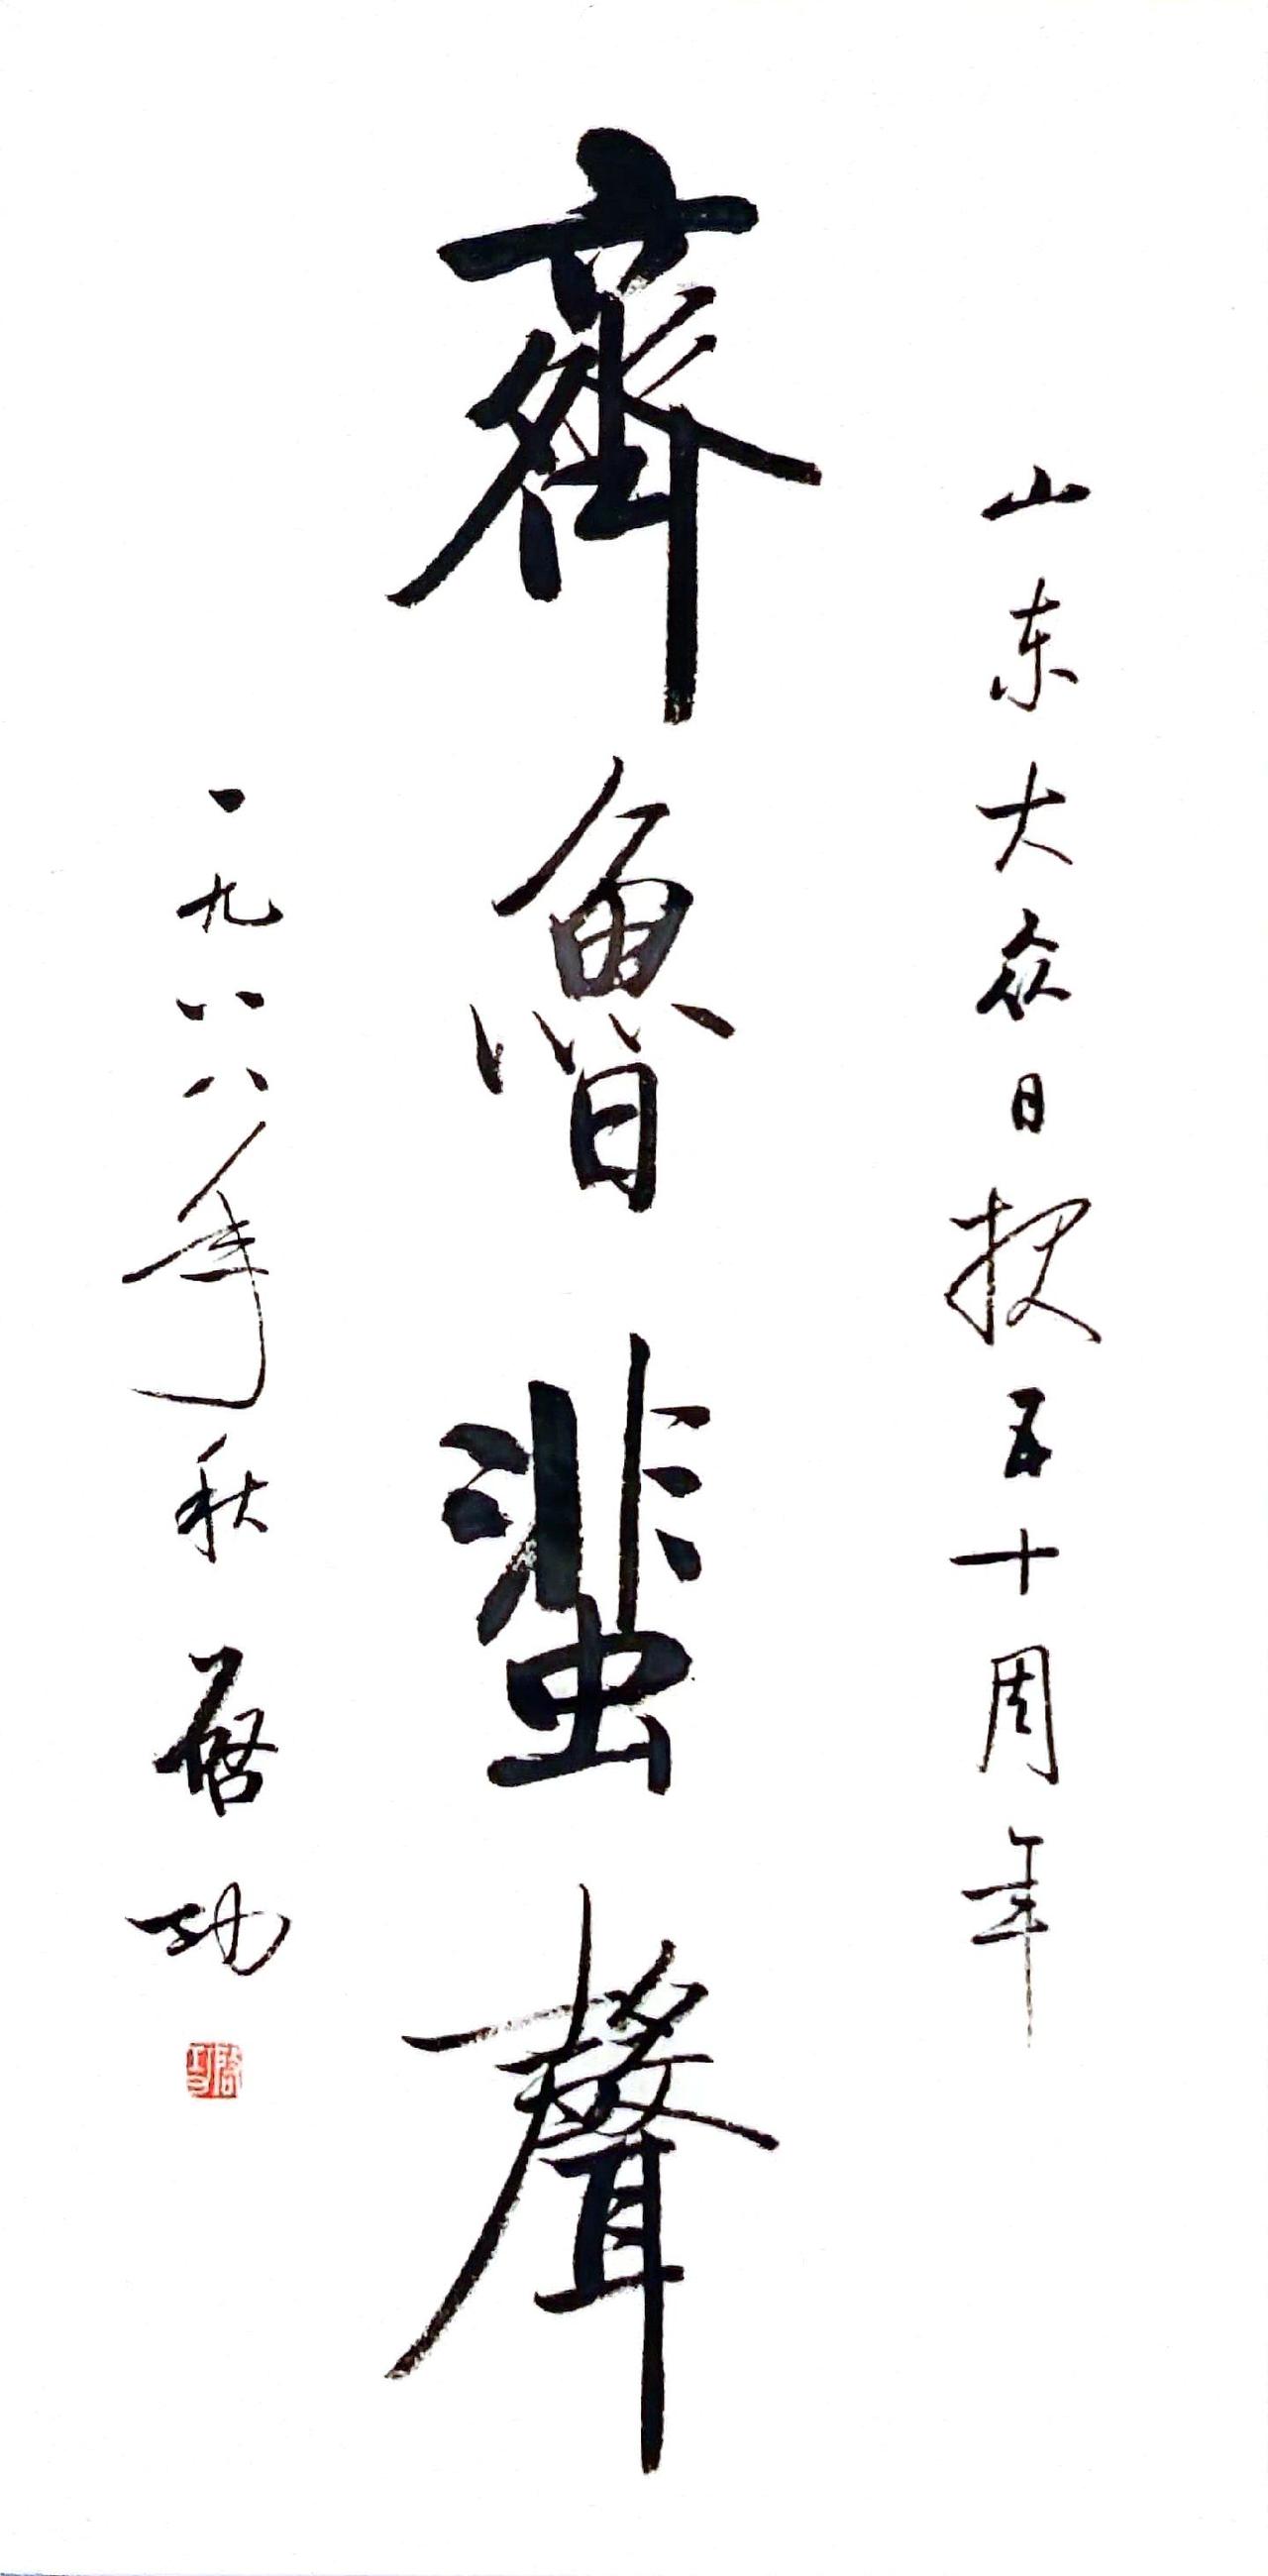 山东大众日报五十周年
齊魯蜚聲
一九八八年秋 启功
启功